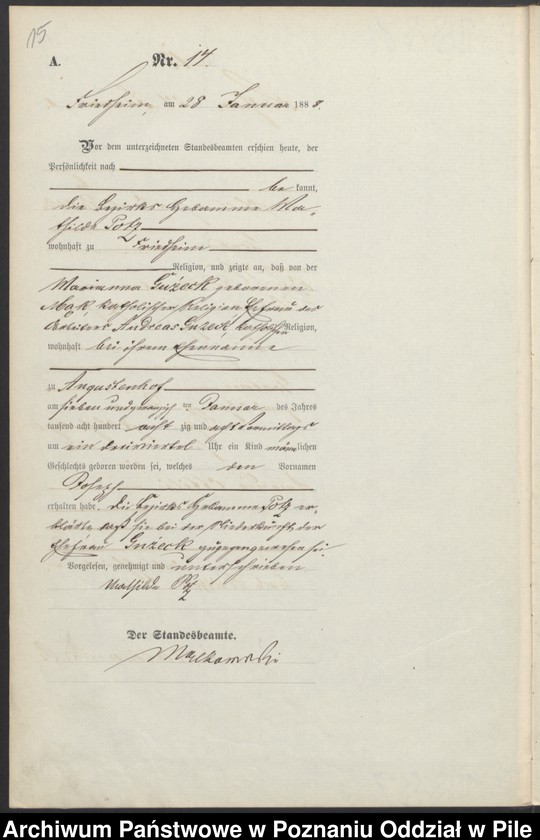 15
A.
Nr. 17.
Friedheim, am 28 Januar 1888.
Vor dem unterzeichneten Standesbeamten erschien heute, der
Persönlichkeit nach
be kannt,
die Bezirks Hebamme Ma-
thilde Potz
wohnhaft zu Friedheim
Religion, und zeigte an, daß von der
Marianna Guzeck geborenen
Mak, katholischer Religion Ehefrau des
Arbeiters Andreas Guzeck, katholischer Religion,
wohnhaft bei ihrem Ehemanne
zu Augustenhof
am sieben und zwanzigsten Januar des Jahres
tausend acht hundert acht zig und acht Vormittags
um ein Uhr ein Kind männlichen
Geschlechts geboren worden sei, welches den Vornamen
Joseph
erhalten habe. Die Bezirks Hebamme Potz er-
klärte daß sie bei der Niederkunft der
Ehefrau Guzeck zugegen gewesen sei.
Vorgelesen, genehmigt und unterschrieben
Mathilde Potz
Der Standesbeamte.
Malkowski
Archiwum Państwowe w Poznaniu Oddział w Pile